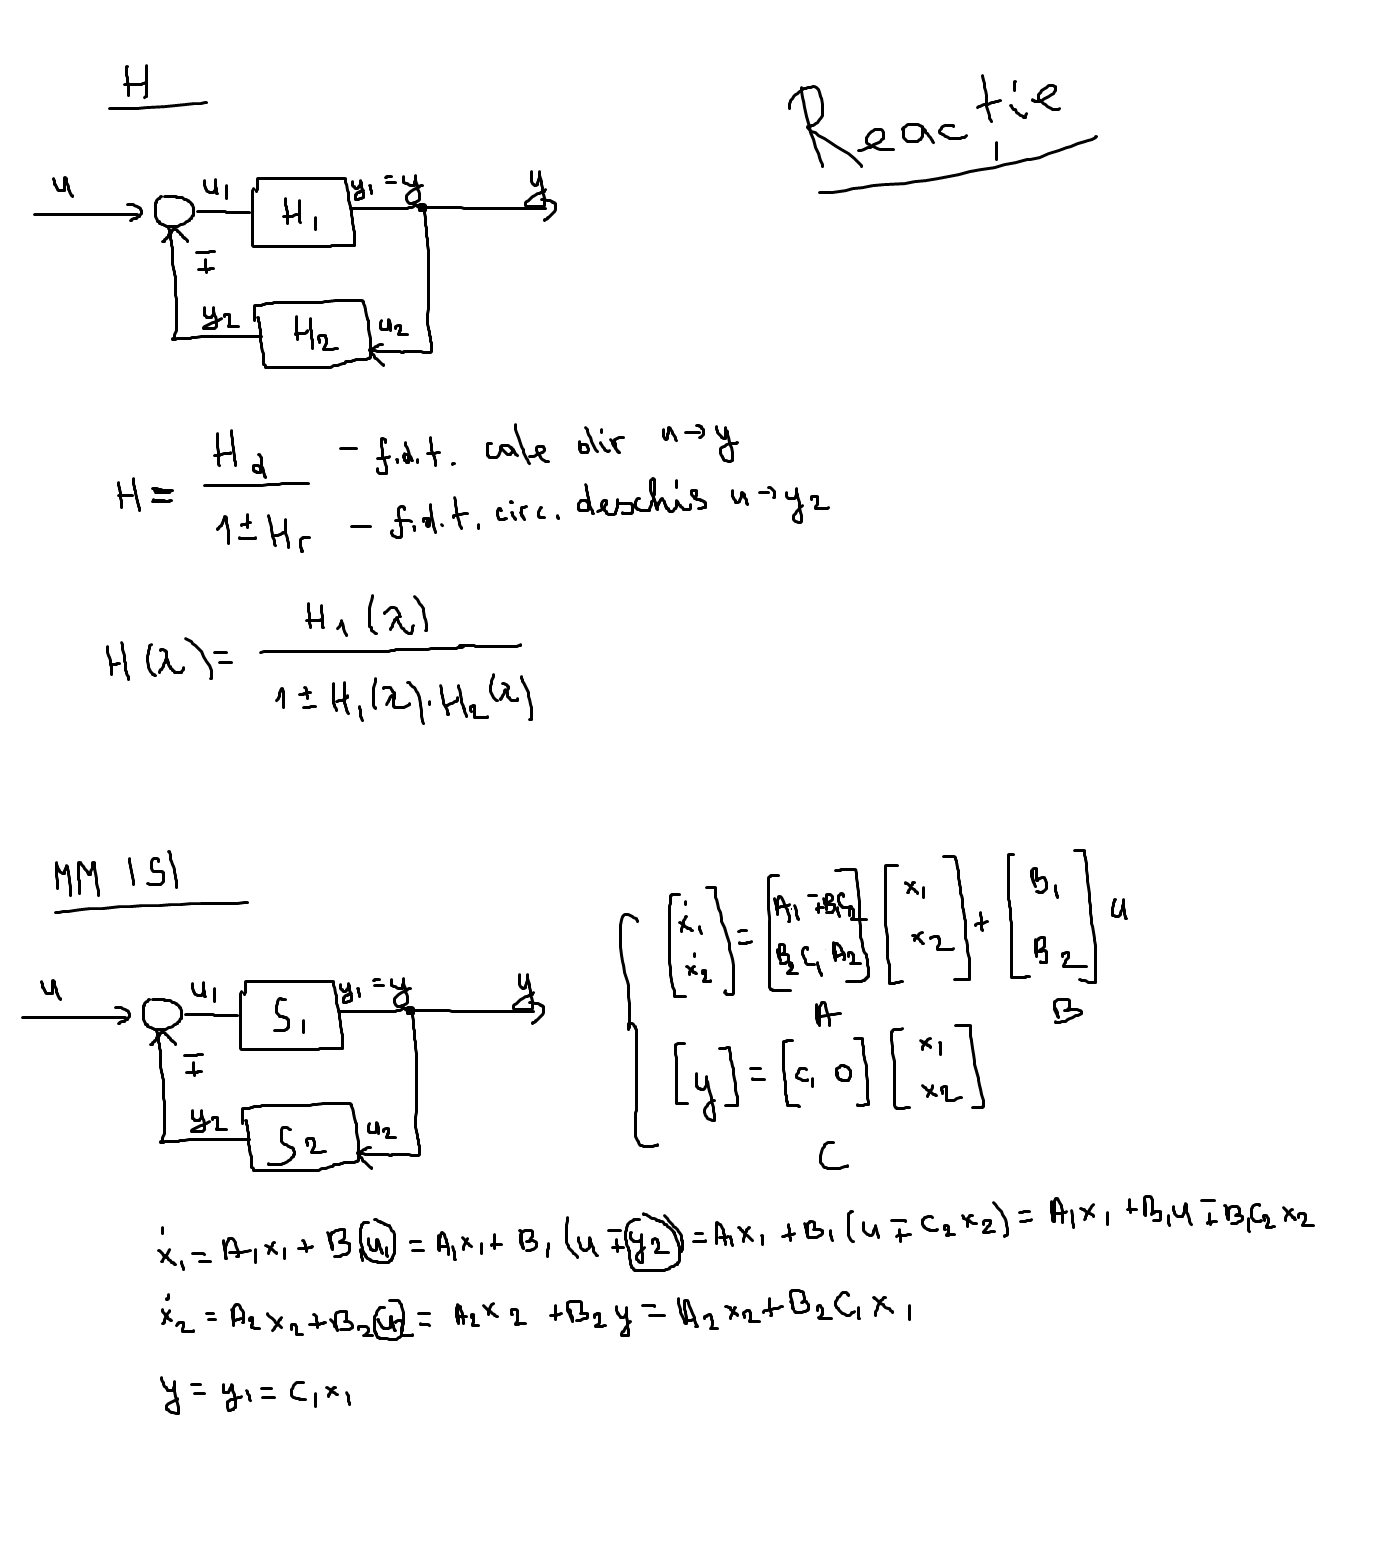 H
Reacție
u u₁ H₁ y₁ = y y
∓
y₂ H₂ u₂
H = H_d / (1 ± H_r)
– f.d.t. cale dir u → y
– f.d.t. circ. deschis u → y₂
H(λ) = H₁(λ) / (1 ± H₁(λ)·H₂(λ))
MM ISI
u u₁ S₁ y₁ = y y
∓
y₂ S₂ u₂
[ẋ₁ ẋ₂] = [A₁ ∓B₁C₂ B₂C₁ A₂] [x₁ x₂] + [B₁ B₂] u
A B
[y] = [C₁ 0] [x₁ x₂]
C
ẋ₁ = A₁x₁ + B₁u₁ = A₁x₁ + B₁(u ∓ y₂) = A₁x₁ + B₁(u ∓ C₂x₂) = A₁x₁ + B₁u ∓ B₁C₂x₂
ẋ₂ = A₂x₂ + B₂u₂ = A₂x₂ + B₂y = A₂x₂ + B₂C₁x₁
y = y₁ = C₁x₁